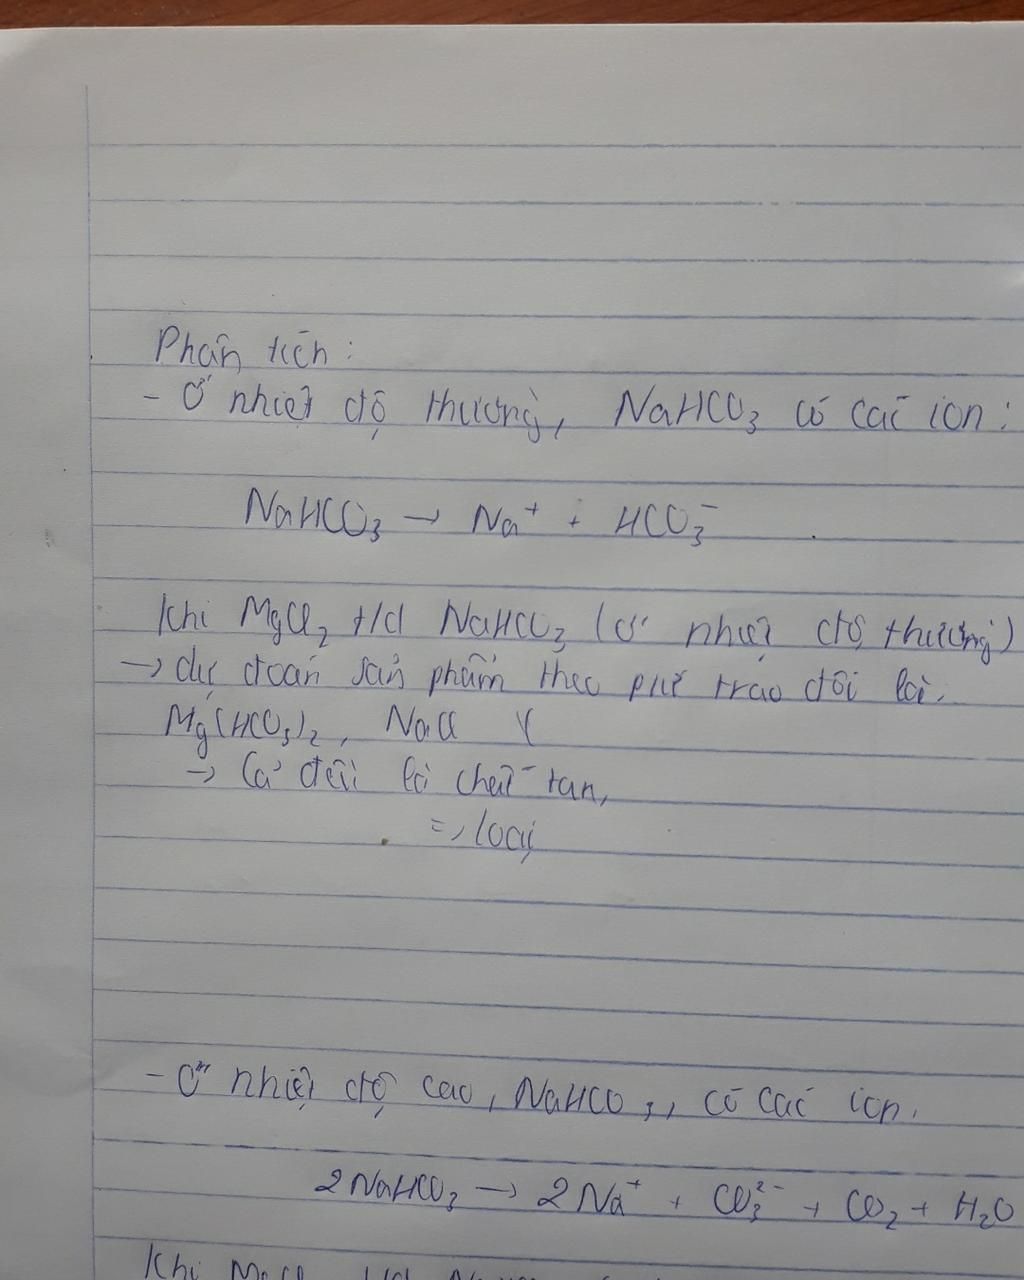 Phân tích :
- Ở nhiệt độ thường, NaHCO₃ có các ion :
NaHCO₃ → Na⁺ + HCO₃⁻
Khi MgCl₂ t/d NaHCO₃ (ở nhiệt độ thường)
→ dự đoán sản phẩm theo pứ trao đổi là.
Mg(HCO₃)₂, NaCl
→ Cả đều là chất tan,
=> loại
- Ở nhiệt độ cao, NaHCO₃, có các ion.
2NaHCO₃ → 2Na⁺ + CO₃²⁻ + CO₂ + H₂O
Khi MgCl₂ t/d